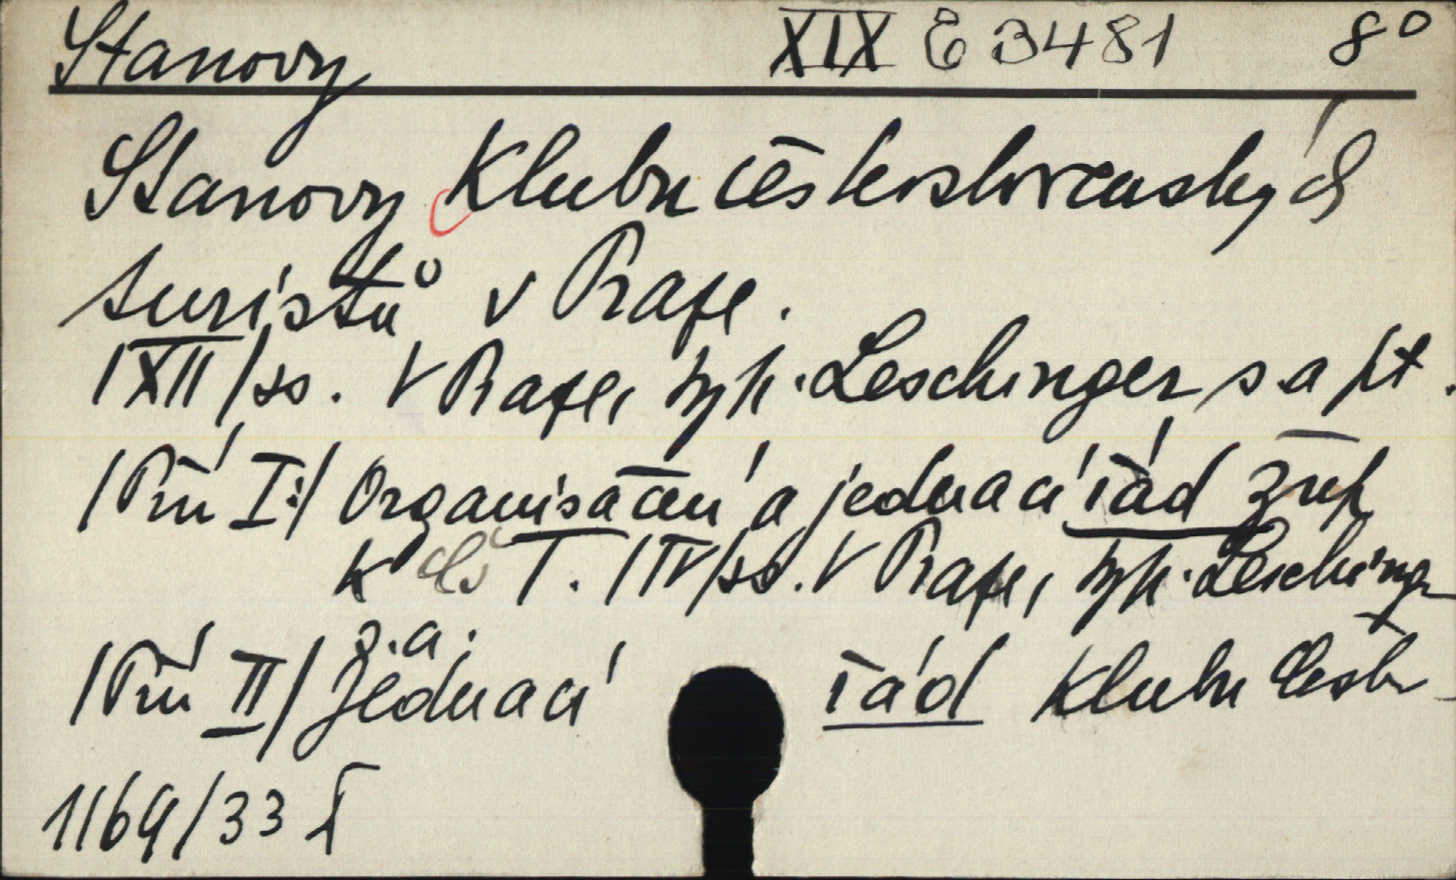 Stanovy XIX E 3481 8°
Stanovy Klubu československých
turistů v Praze.
/XII/ ss. V Praze, typ. Leschinger s.a
/Přív I:/ Organisační a jednací řád
K T. /IV/ ss. V Praze, typ. Leschinger
s.a.
/Přív II/ Jednací řád Klubu česk
1169/33